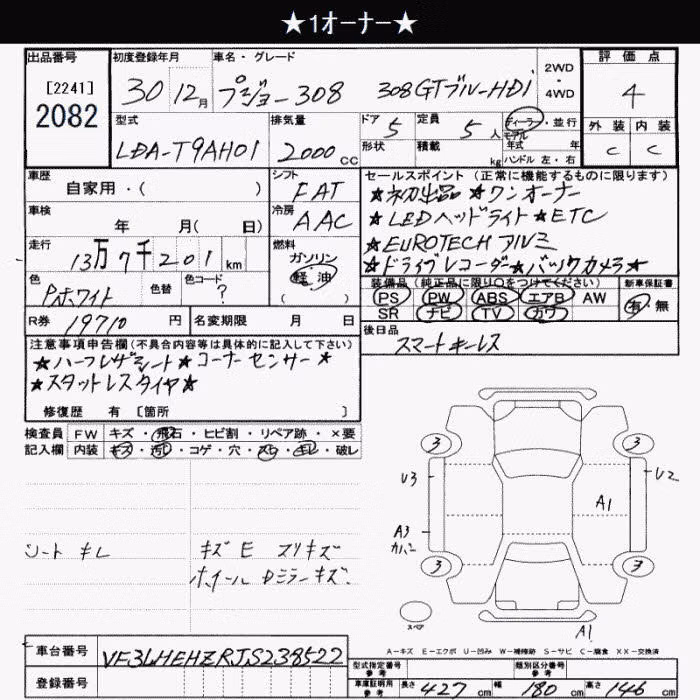 ★1オーナー★
出品番号 初度登録年月 車名・グレード 2WD・4WD 評価点
[2241]
2082
30 12月 プジョー308 308GTブルーHDi 4
型式 排気量 ドア 定員 ディーラー・並行 外装 内装
LDA-T9AH01 2000cc 5 5人 モデル年式 年 C C
形状 積載 kg ハンドル 左・右
車歴 シフト セールスポイント (正常に機能するものに限ります)
自家用・( ) FAT ★初出品 ★ワンオーナー
車検 冷房 ★LEDヘッドライト ★ETC
年 月( 日) AAC ★EUROTECH アルミ
走行 燃料 ★ドライブレコーダー★バックカメラ★
13万7千201km ガソリン 軽油
色 色替 色コード 装備品 (純正品に限り○をつけてください) 新車保証書
Pホワイト ? PS PW ABS エアB AW 有・無
R券 19710円 名変期限 月 日 SR ナビ TV カワ
注意事項申告欄(不具合内容等は具体的に記入して下さい) 後日品
★ハーフレザーシート★コーナーセンサー★ スマートキーレス
★スタットレスタイヤ★
修復歴 有 [箇所 ]
検査員 FW キズ・飛石・ヒビ割・リペア跡・×要
記入欄 内装 キズ・汚レ・コゲ・穴・スレ・キレ・破レ
シート キレ キズ E スリキズ
ホイール Dミラーキズ
3 3
U3 U2
A1
A3
カバー
3 3
スペア
A1
A-キズ E-エクボ U-凹み W-補修跡 S-サビ C-腐食 XX-交換済
車台番号 VF3LHEHZRJS238522
登録番号
型式指定番号 参考 類別区分番号 参考
車庫証明用 参考 長さ 427cm 幅 180cm 高さ 146cm